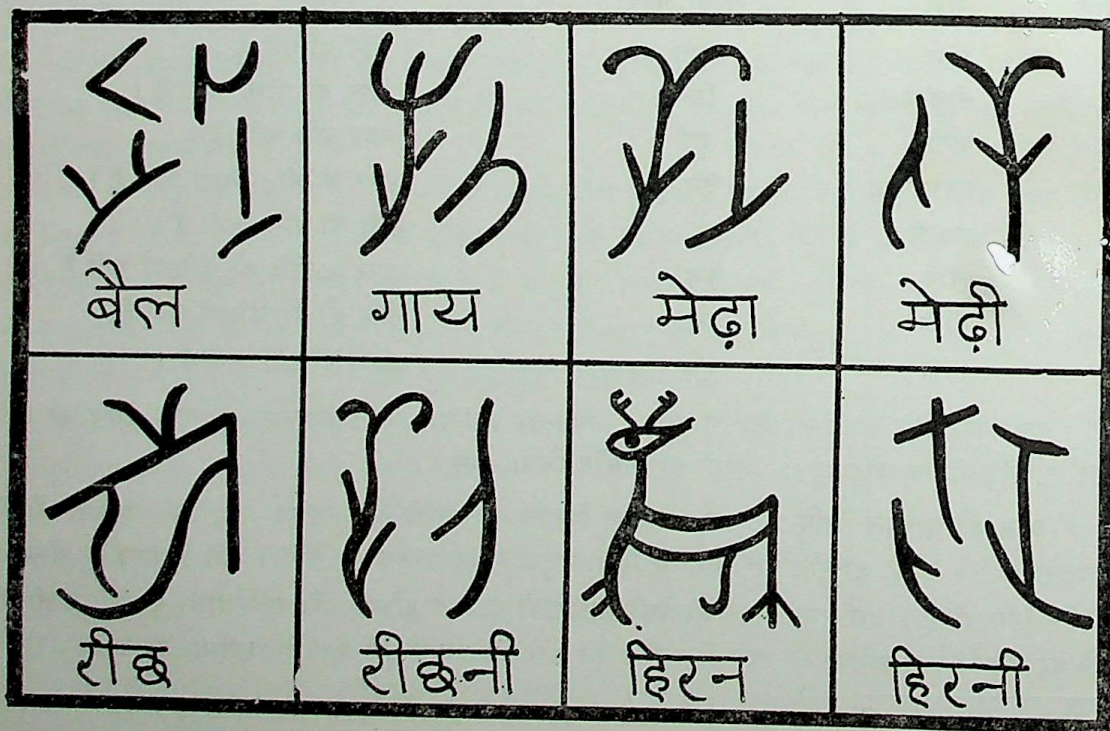 बैल गाय मेढ़ा मेढ़ी
रीछ रीछनी हिरन हिरनी